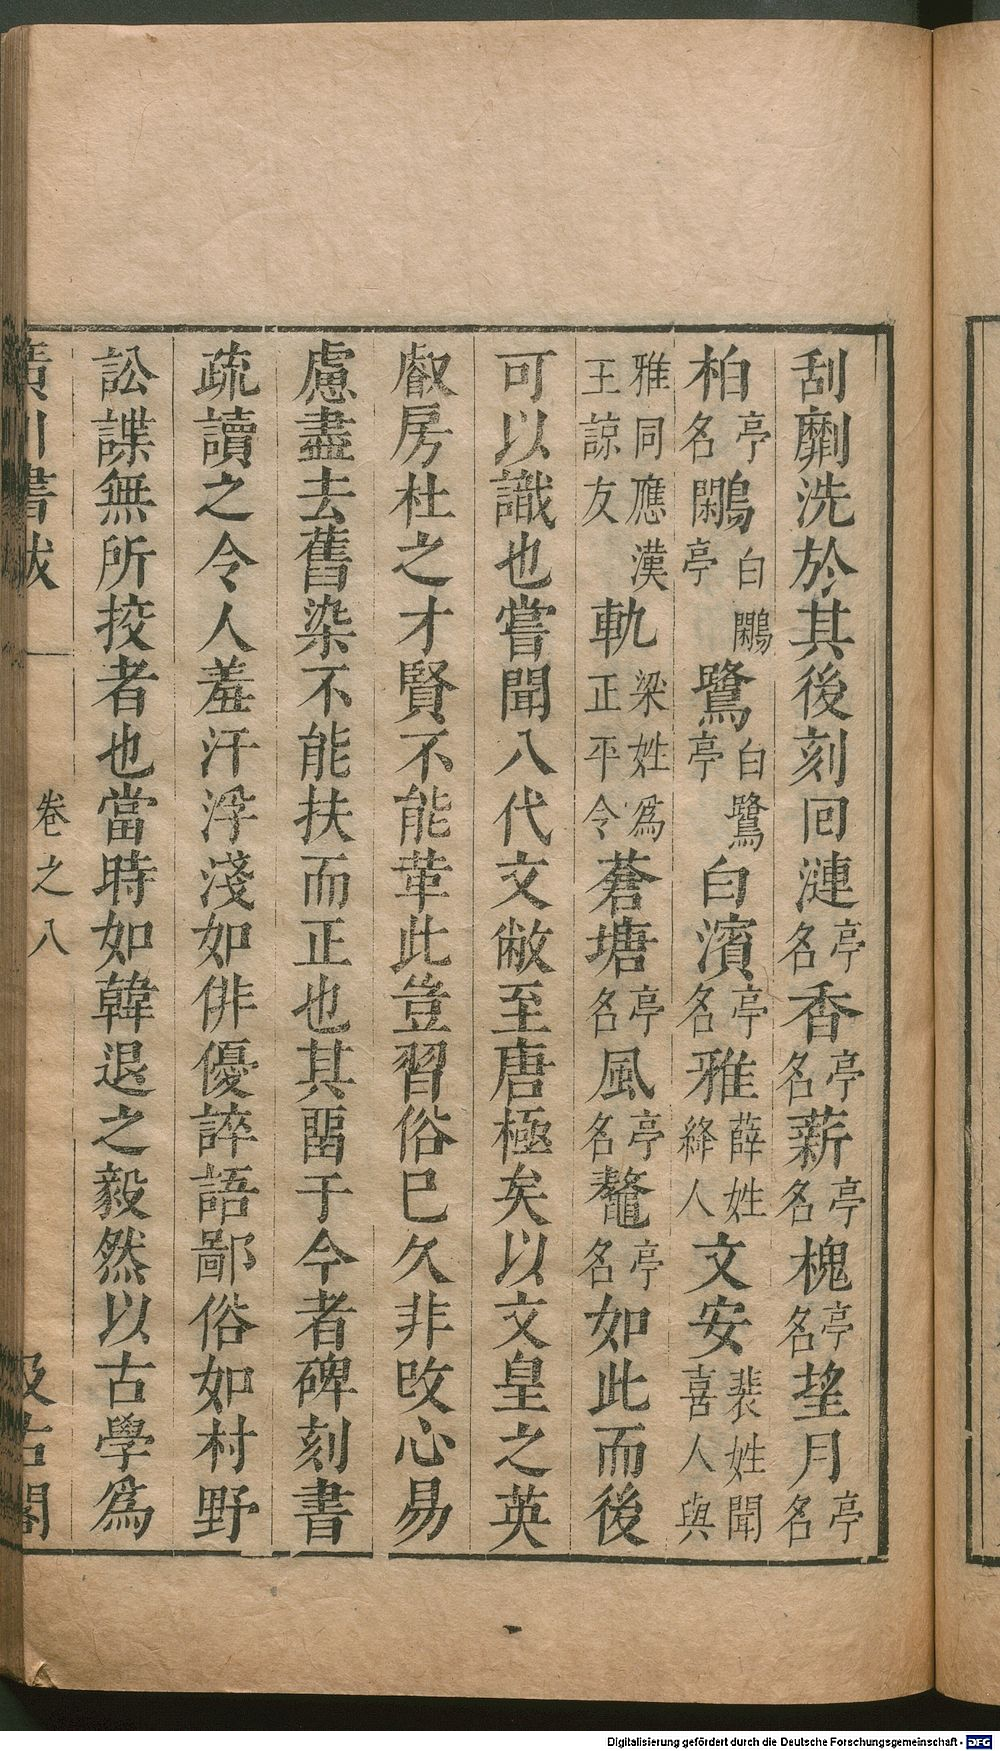 刮劘洗於其後刻回漣亭名香亭名薪亭名槐亭名望月亭名
柏亭名鷴白鷴亭鷺白鷺亭白濱亭名雅薛姓絳人文安裴姓聞喜人與
雅同應漢王諒友軌梁姓爲正平令蒼塘亭名風亭名鼇亭名如此而後
可以識也嘗聞八代文敝至唐極矣以文皇之英
叡房杜之才賢不能革此豈習俗已久非改心易
慮盡去舊染不能扶而正也其畱于今者碑刻書
疏讀之令人羞汗浮淺如俳優誶語鄙俗如村野
訟諜無所挍者也當時如韓退之毅然以古學爲
廣川書跋 卷之八 汲古閣
Digitalisierung gefördert durch die Deutsche Forschungsgemeinschaft - DFG